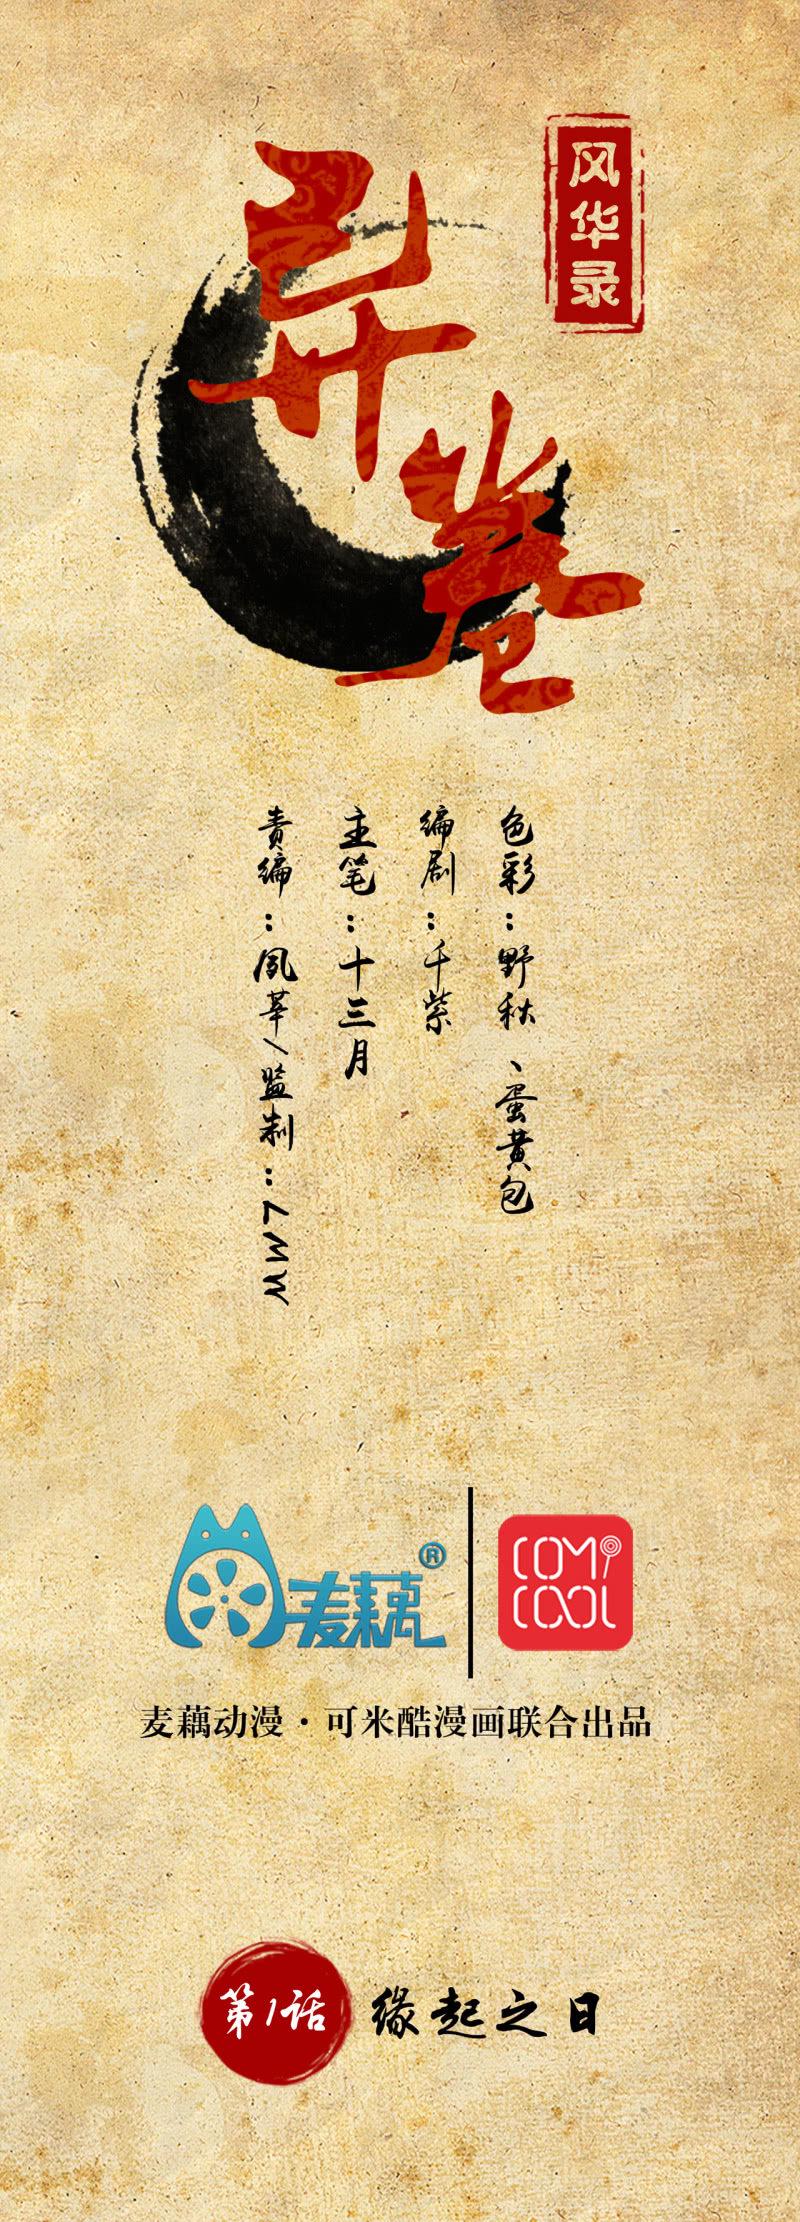 异卷
风华录
色彩：野秋、蛋黄包
编剧：千紫
主笔：十三月
责编：夙莘/监制：LMW
麦藕®
COMI COOL
麦藕动漫·可米酷漫画联合出品
第1话 缘起之日